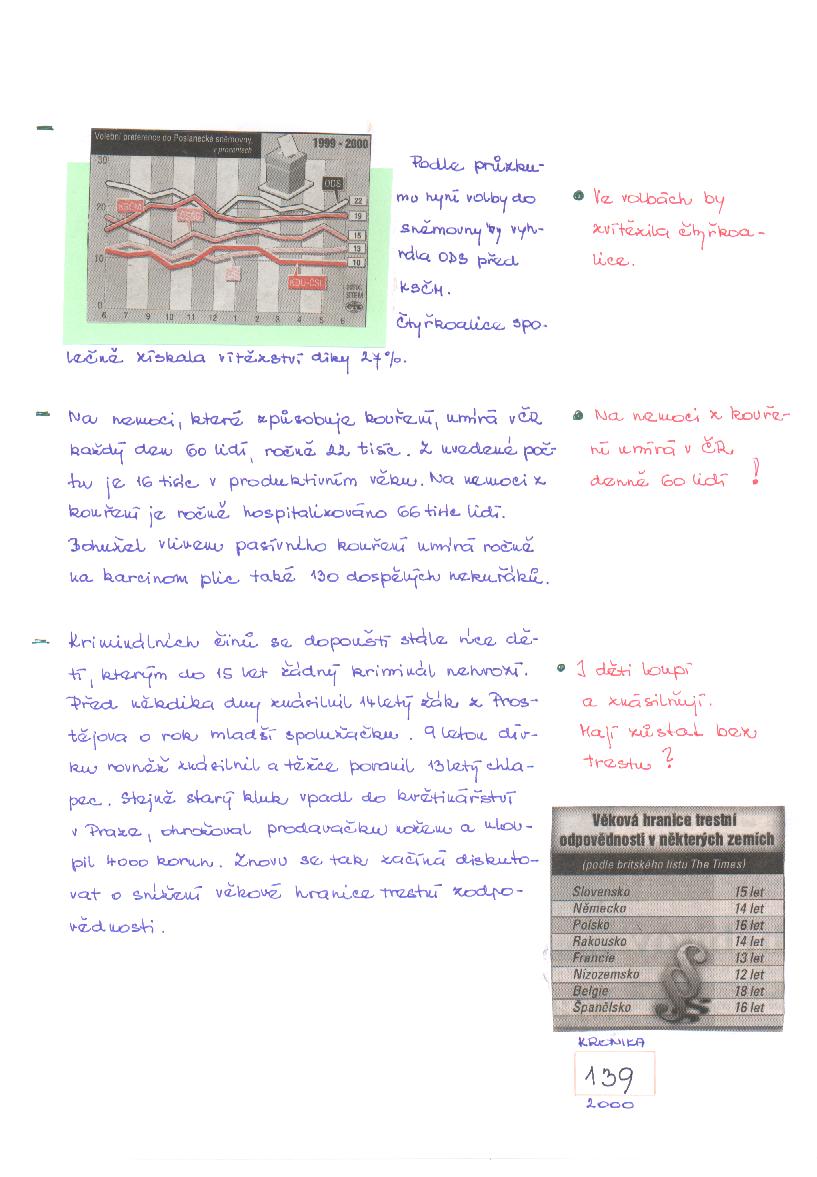 Volební preference do Poslanecké sněmovny
v procentech
1999 - 2000
30
20
10
0
ODS
KSČM
ČSSD
US
KDU-ČSL
22
19
15
13
10
STEM
6 7 9 10 11 12 1 2 3 4 5 6
Podle průzku-
mu nyní volby do
sněmovny by vyh-
rála ODS před
KSČM.
Čtyřkoalice spo-
lečně získala vítězství díky 27%.
Ve volbách by
zvítězila čtyřkoa-
lice.
Na nemoci, které způsobuje kouření, umírá v ČR
každý den 60 lidí, ročně 22 tisíc. Z uvedené poč-
tu je 16 tisíc v produktivním věku. Na nemoci z
kouření je ročně hospitalizováno 66 tisíc lidí.
Bohužel vlivem pasívního kouření umírá ročně
na karcinom plic také 130 dospělých nekuřáků.
Na nemoci z kouře-
ní umírá v ČR
denně 60 lidí !
Kriminálních činů se dopouští stále více dě-
tí, kterým do 15 let žádný kriminál nehrozí.
Před několika dny znásilnil 14letý žák z Pros-
tějova o rok mladší spolužačku. 9letou dív-
ku rovněž znásilnil a těžce poranil 13letý chla-
pec. Stejně starý kluk vpadl do květinářství
v Praze, ohrožoval prodavačku nožem a ulou-
pil 4000 korun. Znovu se tak začíná diskuto-
vat o snížení věkové hranice trestní zodpo-
vědnosti.
I děti loupí
a znásilňují.
Mají zůstat bez
trestu ?
Věková hranice trestní
odpovědnosti v některých zemích
(podle britského listu The Times)
Slovensko 15 let
Německo 14 let
Polsko 16 let
Rakousko 14 let
Francie 13 let
Nizozemsko 12 let
Belgie 18 let
Španělsko 16 let
KRONIKA
139
2000